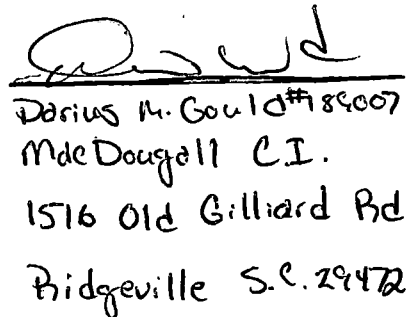 Darius M. Gould #189007
MacDougall C.I.
1516 Old Gilliard Rd
Ridgeville S.C. 29472